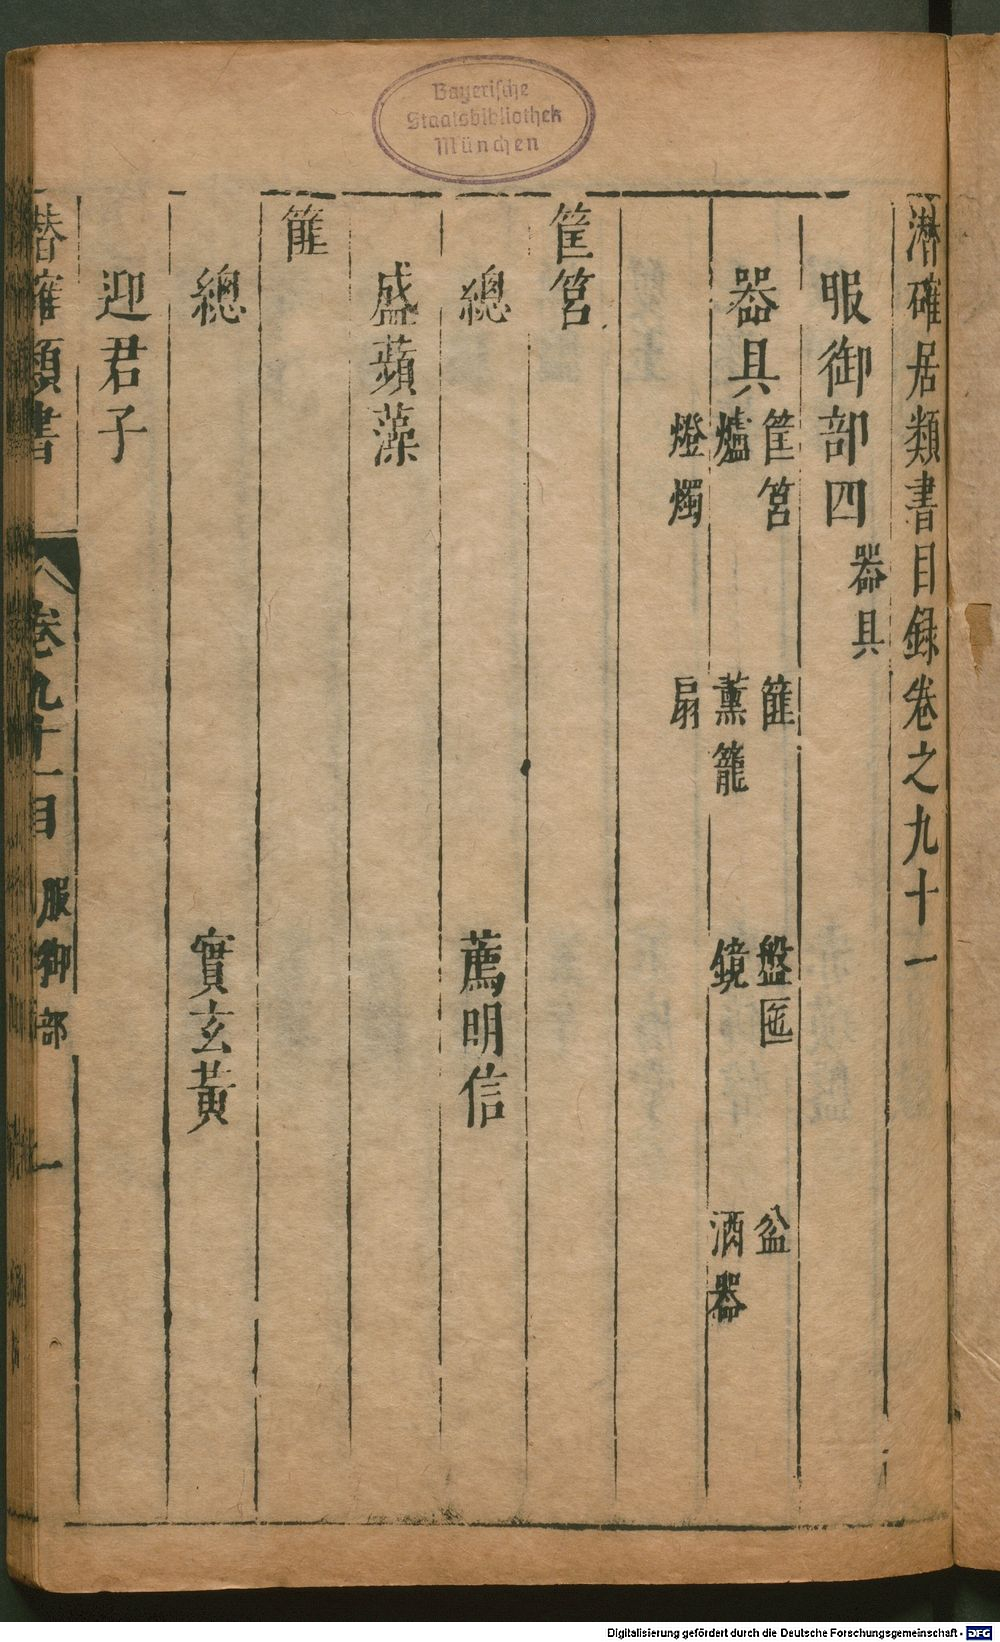 潛確居類書目録卷之九十一
服御部四 器具
器具 筐筥 篚 盤匜 盆
爐 薰籠 鏡 酒器
燈燭 扇
筐筥
總 薦明信
盛蘋藻
篚
總 實玄黃
迎君子
潛確類書 卷九十一目 服御部 一
Bayerische
Staatsbibliothek
München
Digitalisierung gefördert durch die Deutsche Forschungsgemeinschaft - DFG